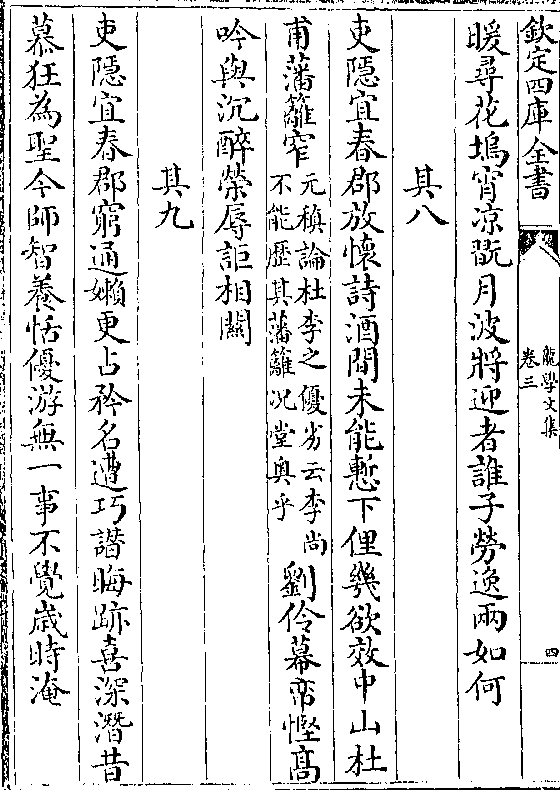 欽定四庫全書
龍學文集
卷三
四
暖尋花塢宵凉翫月波將迎者誰子勞逸兩如何
其八
吏隱宜春郡放懷詩酒間未能慙下俚幾欲效中山杜
甫藩籬窄元稹論杜李之優劣云李尚不能歷其藩籬况堂奥乎劉伶幕帟慳髙
吟與沉醉榮辱詎相關
其九
吏隱宜春郡窮通嬾更占矜名遭巧譖晦跡喜深潛昔
慕狂為聖今師智養恬優游無一事不覺歳時淹